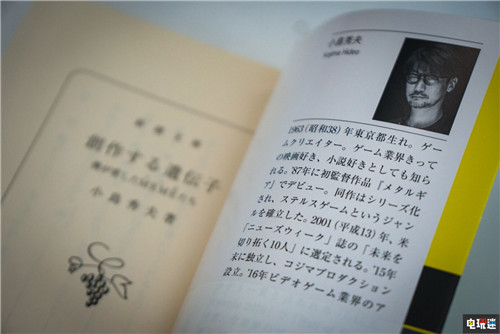 新潮文庫
創作する遺伝子
僕が愛したMEMEたち
小島秀夫著
小島秀夫
Kojima Hideo
1963(昭和38)年東京都生れ。ゲー
ムクリエイター。ゲーム業界きって
の映画好き、小説好きとしても知ら
れる。'87年に初監督作品『メタルギ
ア』でデビュー。同作はシリーズ化
され、ステルスゲームというジャン
ルを確立した。2001(平成13)年、米
「ニューズウィーク」誌の「未来を
切り拓く10人」に選定される。'15年
末に独立し、コジマプロダクション
設立。'16年ビデオゲーム業界のア
电玩迷